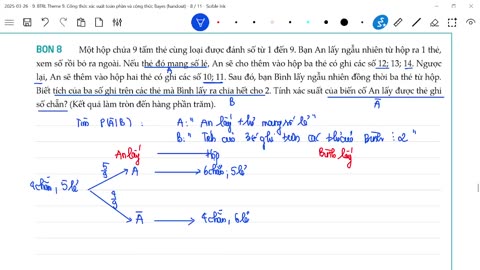 2025-03-26 9. BTRL Theme 9. Công thức xác suất toàn phần và công thức Bayes (handout) - 8 / 11 - Sotide Ink
BON 8 Một hộp chứa 9 tấm thẻ cùng loại được đánh số từ 1 đến 9. Bạn An lấy ngẫu nhiên từ hộp ra 1 thẻ,
xem số rồi bỏ ra ngoài. Nếu thẻ đó mang số lẻ, An sẽ cho thêm vào hộp ba thẻ có ghi các số 12; 13; 14. Ngược
A
lại, An sẽ thêm vào hộp hai thẻ có ghi các số 10; 11. Sau đó, bạn Bình lấy ngẫu nhiên đồng thời ba thẻ từ hộp.
Biết tích của ba số ghi trên các thẻ mà Bình lấy ra chia hết cho 2. Tính xác suất của biến cố An lấy được thẻ ghi
số chẵn? (Kết quả làm tròn đến hàng phần trăm).
B
Ā
Tìm P(Ā|B) : A: "An lấy thẻ mang số lẻ"
B: "Tích của 3 số ghi trên các thẻ của Bình ⋮ 2"
An lấy Hộp Bình lấy
5/9 A 6 chẵn, 5 lẻ
4 chẵn, 5 lẻ
4/9
Ā 4 chẵn, 6 lẻ